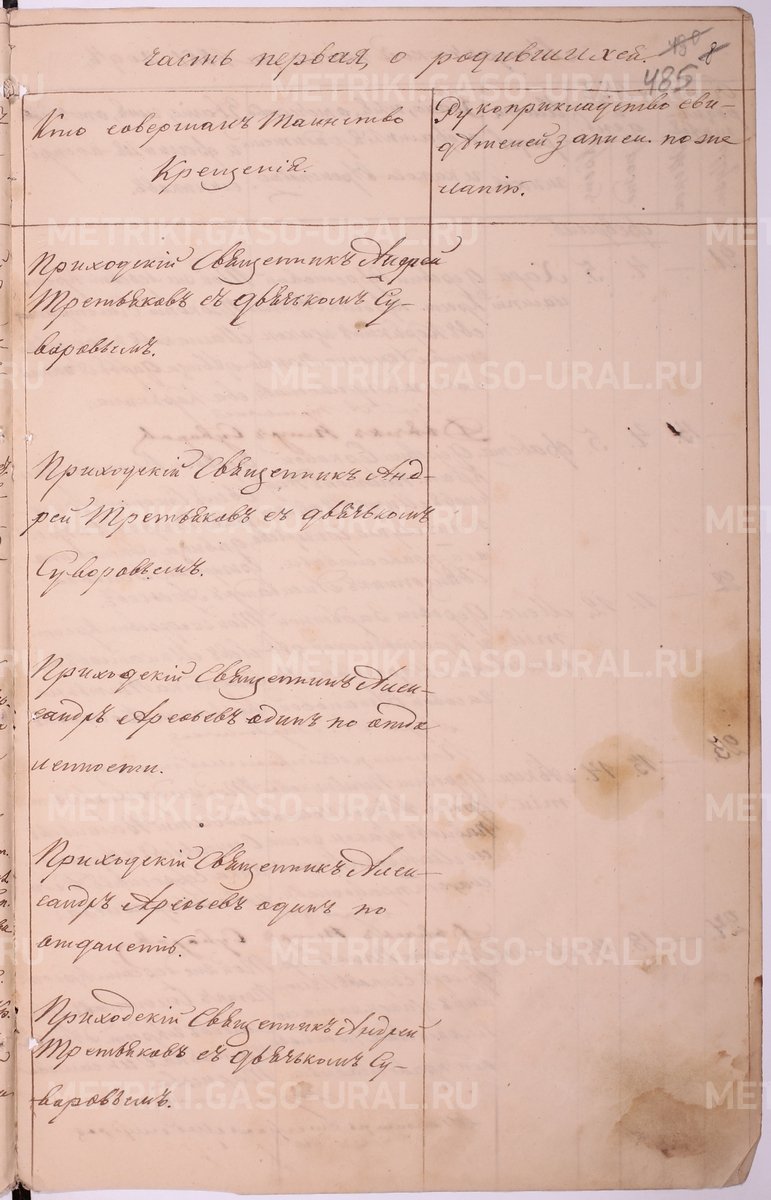 часть первая, о родившихся. 430 8
485
Кто совершалъ Таинство
Крещенія.
Рукоприкладство сви-
дѣтелей записи по же
ланію.
Приходскій Священникъ Андрей
Третьяковъ съ дьячькомъ Су-
воровымъ.
Приходскій Священникъ Анд-
рей Третьяковъ съ дьячькомъ
Суворовымъ.
Приходскій Священникъ Алек-
сандръ Арефьевъ одинъ по отда
ленности.
Приходскій Священникъ Алек-
сандръ Арефьевъ одинъ по
отдаленію.
Приходскій Священникъ Андрей
Третьяковъ съ дьячькомъ Су-
воровымъ.
METRIKI.GASO-URAL.RU